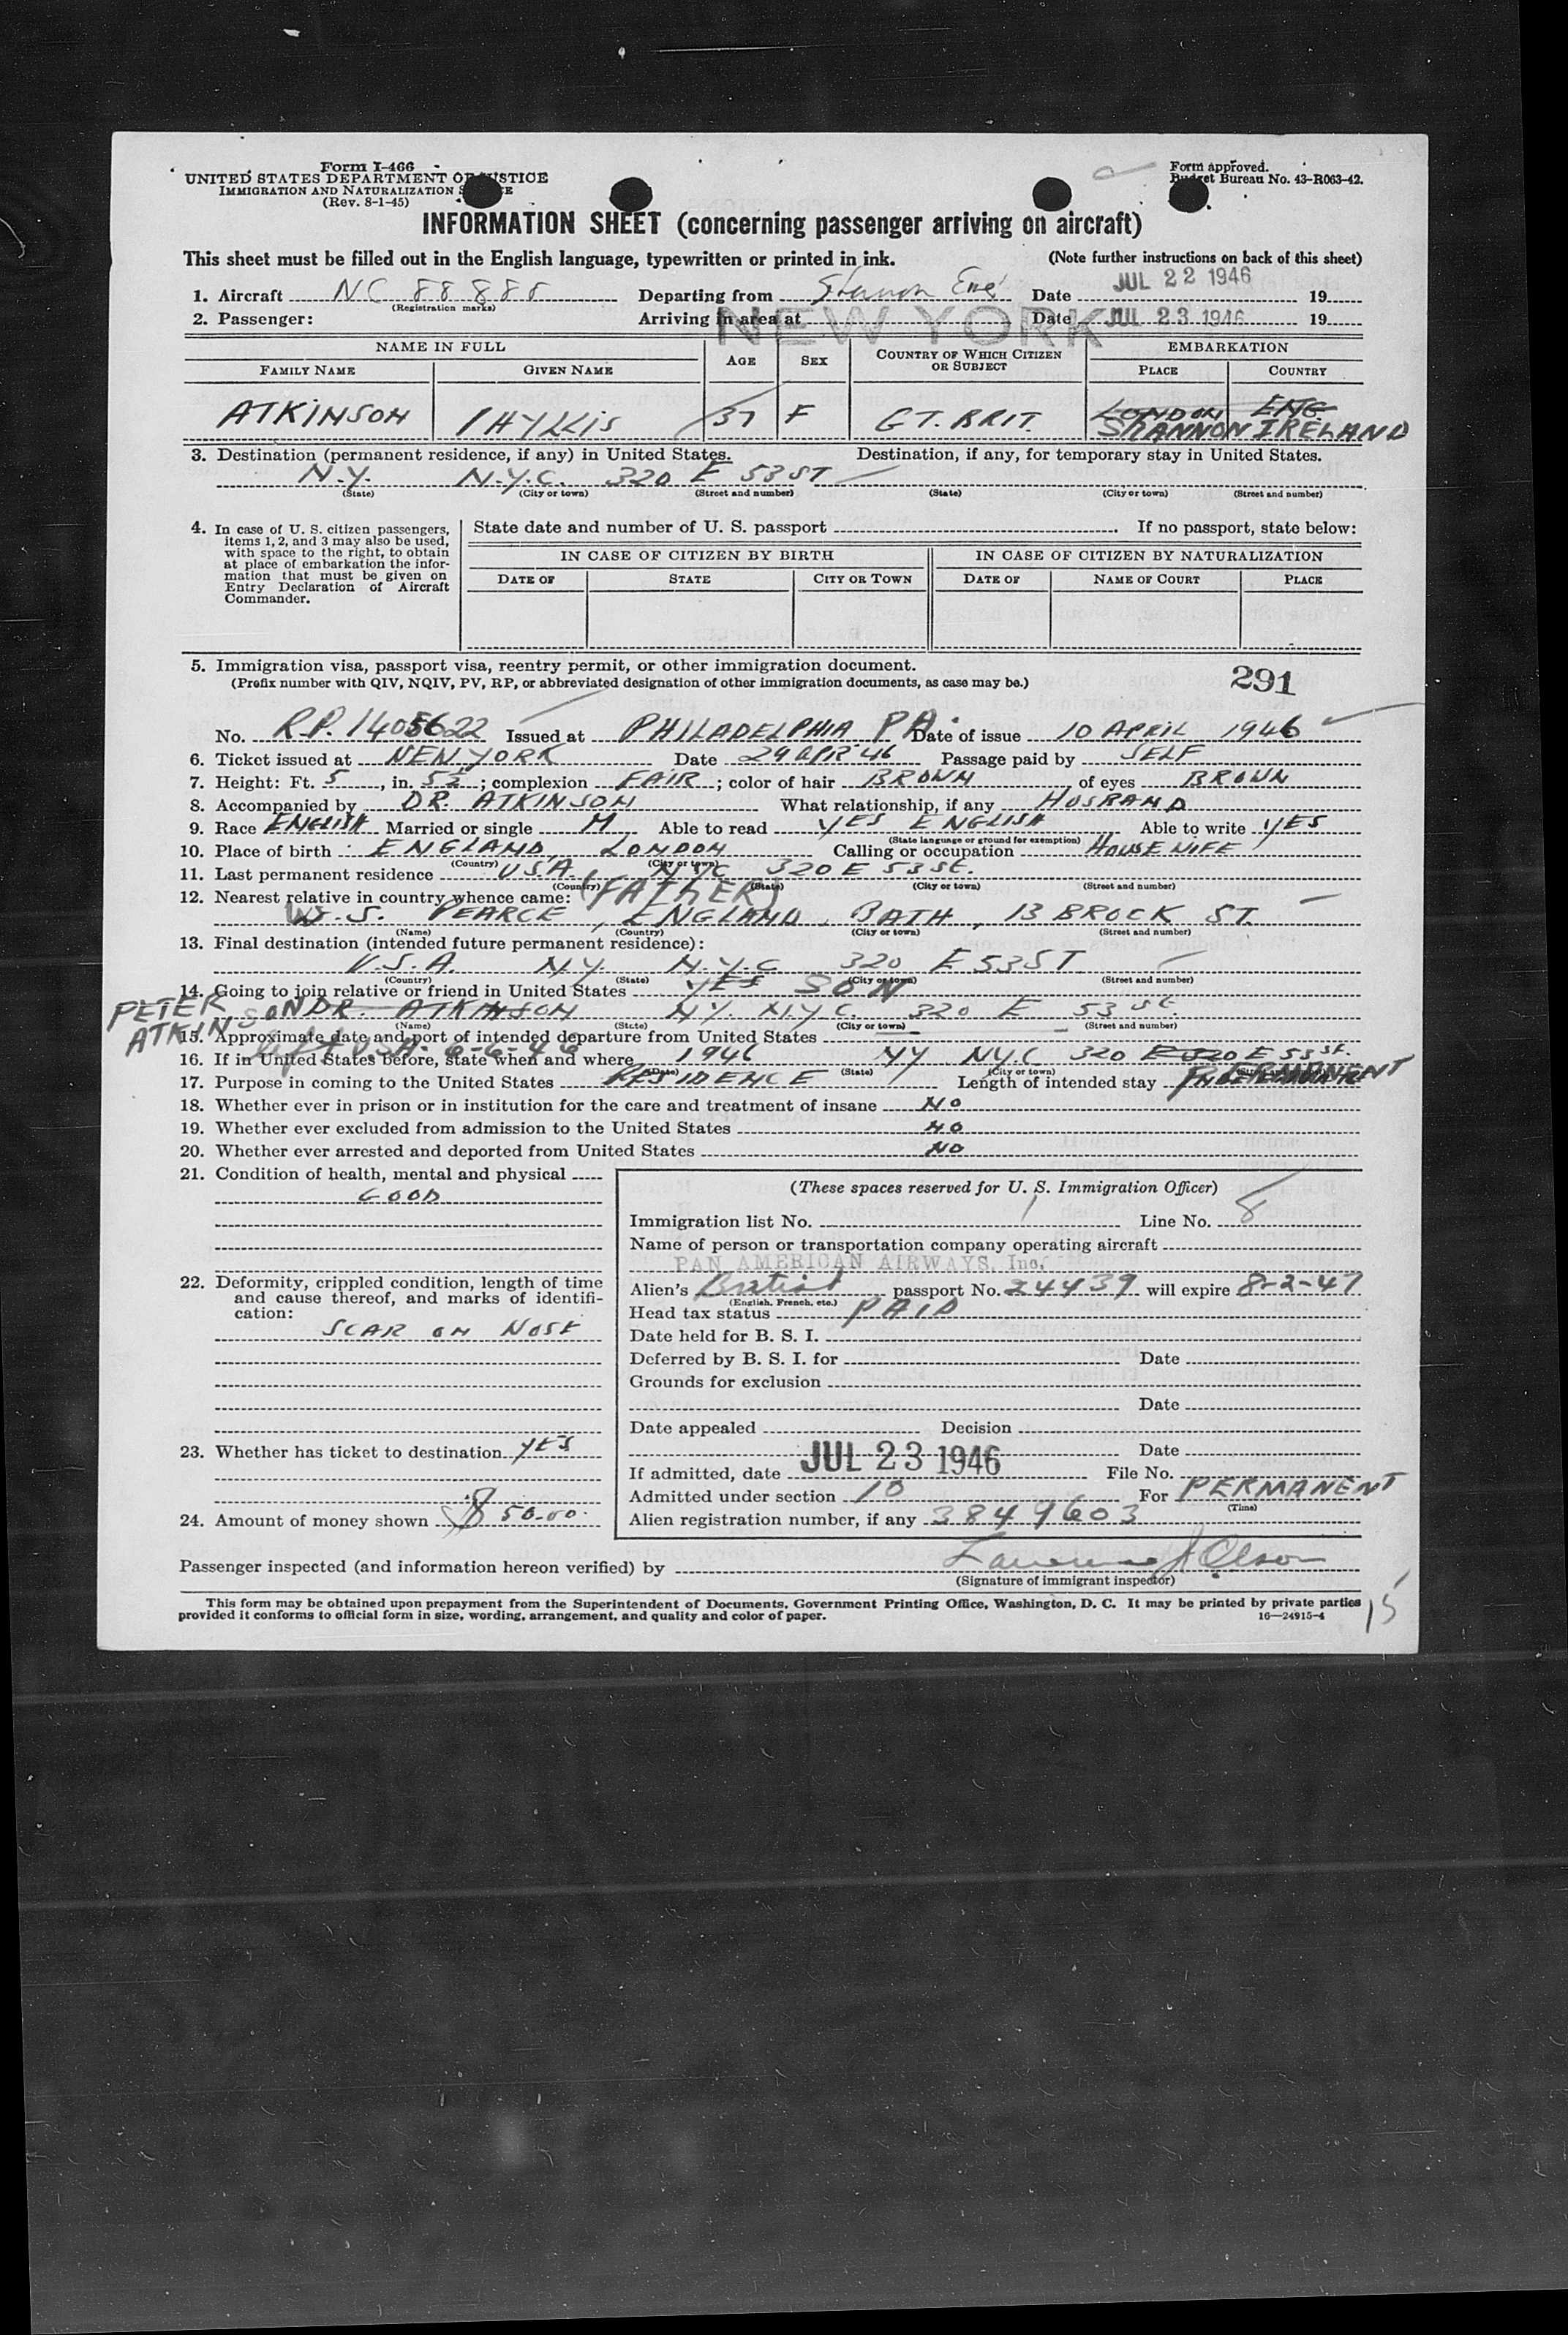 Form I-466
UNITED STATES DEPARTMENT OF JUSTICE
IMMIGRATION AND NATURALIZATION SERVICE
(Rev. 8-1-45)
Form approved.
Budget Bureau No. 43-R063-42.
INFORMATION SHEET (concerning passenger arriving on aircraft)
This sheet must be filled out in the English language, typewritten or printed in ink. (Note further instructions on back of this sheet)
1. Aircraft NC 88888 Departing from Shannon Eire Date JUL 22 1946 19
(Registration marks)
2. Passenger: Arriving in area at NEW YORK Date JUL 23 1946 19
NAME IN FULL AGE SEX COUNTRY OF WHICH CITIZEN OR SUBJECT EMBARKATION
FAMILY NAME GIVEN NAME PLACE COUNTRY
ATKINSON PHYLLIS 37 F GT. BRIT. LONDON ENG.
SHANNON IRELAND
3. Destination (permanent residence, if any) in United States. Destination, if any, for temporary stay in United States.
N.Y. N.Y.C. 320 E 53 ST
(State) (City or town) (Street and number) (State) (City or town) (Street and number)
4. In case of U. S. citizen passengers, items 1, 2, and 3 may also be used, with space to the right, to obtain at place of embarkation the information that must be given on Entry Declaration of Aircraft Commander.
State date and number of U. S. passport If no passport, state below:
IN CASE OF CITIZEN BY BIRTH IN CASE OF CITIZEN BY NATURALIZATION
DATE OF STATE CITY OR TOWN DATE OF NAME OF COURT PLACE
5. Immigration visa, passport visa, reentry permit, or other immigration document.
(Prefix number with QIV, NQIV, PV, RP, or abbreviated designation of other immigration documents, as case may be.)
291
No. R.P. 1405622 Issued at PHILADELPHIA PA. Date of issue 10 APRIL 1946
6. Ticket issued at NEW YORK Date 29 APR '46 Passage paid by SELF
7. Height: Ft. 5, in. 5½; complexion FAIR; color of hair BROWN of eyes BROWN
8. Accompanied by DR. ATKINSON What relationship, if any HUSBAND
9. Race ENGLISH Married or single M Able to read YES ENGLISH Able to write YES
(State language or ground for exemption)
10. Place of birth ENGLAND, LONDON Calling or occupation HOUSEWIFE
(Country) (City or town)
11. Last permanent residence U.S.A. NYC 320 E 53 St.
(Country) (State) (City or town) (Street and number)
12. Nearest relative in country whence came: (FATHER)
W. S. PEARCE, ENGLAND, BATH, 13 BROCK ST.
(Name) (Country) (City or town) (Street and number)
13. Final destination (intended future permanent residence):
U.S.A. N.Y. N.Y.C 320 E 53 ST
(Country) (State) (City or town) (Street and number)
14. Going to join relative or friend in United States YES SON
PETER ATKINSON DR. ATKINSON N.Y. N.Y.C. 320 E 53 St.
(Name) (State) (City or town) (Street and number)
15. Approximate date and port of intended departure from United States
left U.S.A. 6-6-46
16. If in United States before, state when and where 1946 NY NY.C 320 E 320 E 53 St.
(Date) (State) (City or town)
17. Purpose in coming to the United States RESIDENCE Length of intended stay PERMANENT
18. Whether ever in prison or in institution for the care and treatment of insane NO
19. Whether ever excluded from admission to the United States NO
20. Whether ever arrested and deported from United States NO
21. Condition of health, mental and physical
GOOD
22. Deformity, crippled condition, length of time and cause thereof, and marks of identification:
SCAR ON NOSE
23. Whether has ticket to destination YES
24. Amount of money shown $ 50.00
(These spaces reserved for U. S. Immigration Officer)
Immigration list No. 1 Line No. 8
Name of person or transportation company operating aircraft
PAN AMERICAN AIRWAYS, Inc.
Alien's British passport No. 24439 will expire 8-2-47
(English, French, etc.)
Head tax status PAID
Date held for B. S. I.
Deferred by B. S. I. for Date
Grounds for exclusion
Date
Date appealed Decision
Date
If admitted, date JUL 23 1946 File No.
Admitted under section 10 For PERMANENT
(Time)
Alien registration number, if any 3849603
Passenger inspected (and information hereon verified) by Lawrence J Olson
(Signature of immigrant inspector)
This form may be obtained upon prepayment from the Superintendent of Documents, Government Printing Office, Washington, D. C. It may be printed by private parties
provided it conforms to official form in size, wording, arrangement, and quality and color of paper. 16—24915-4
15